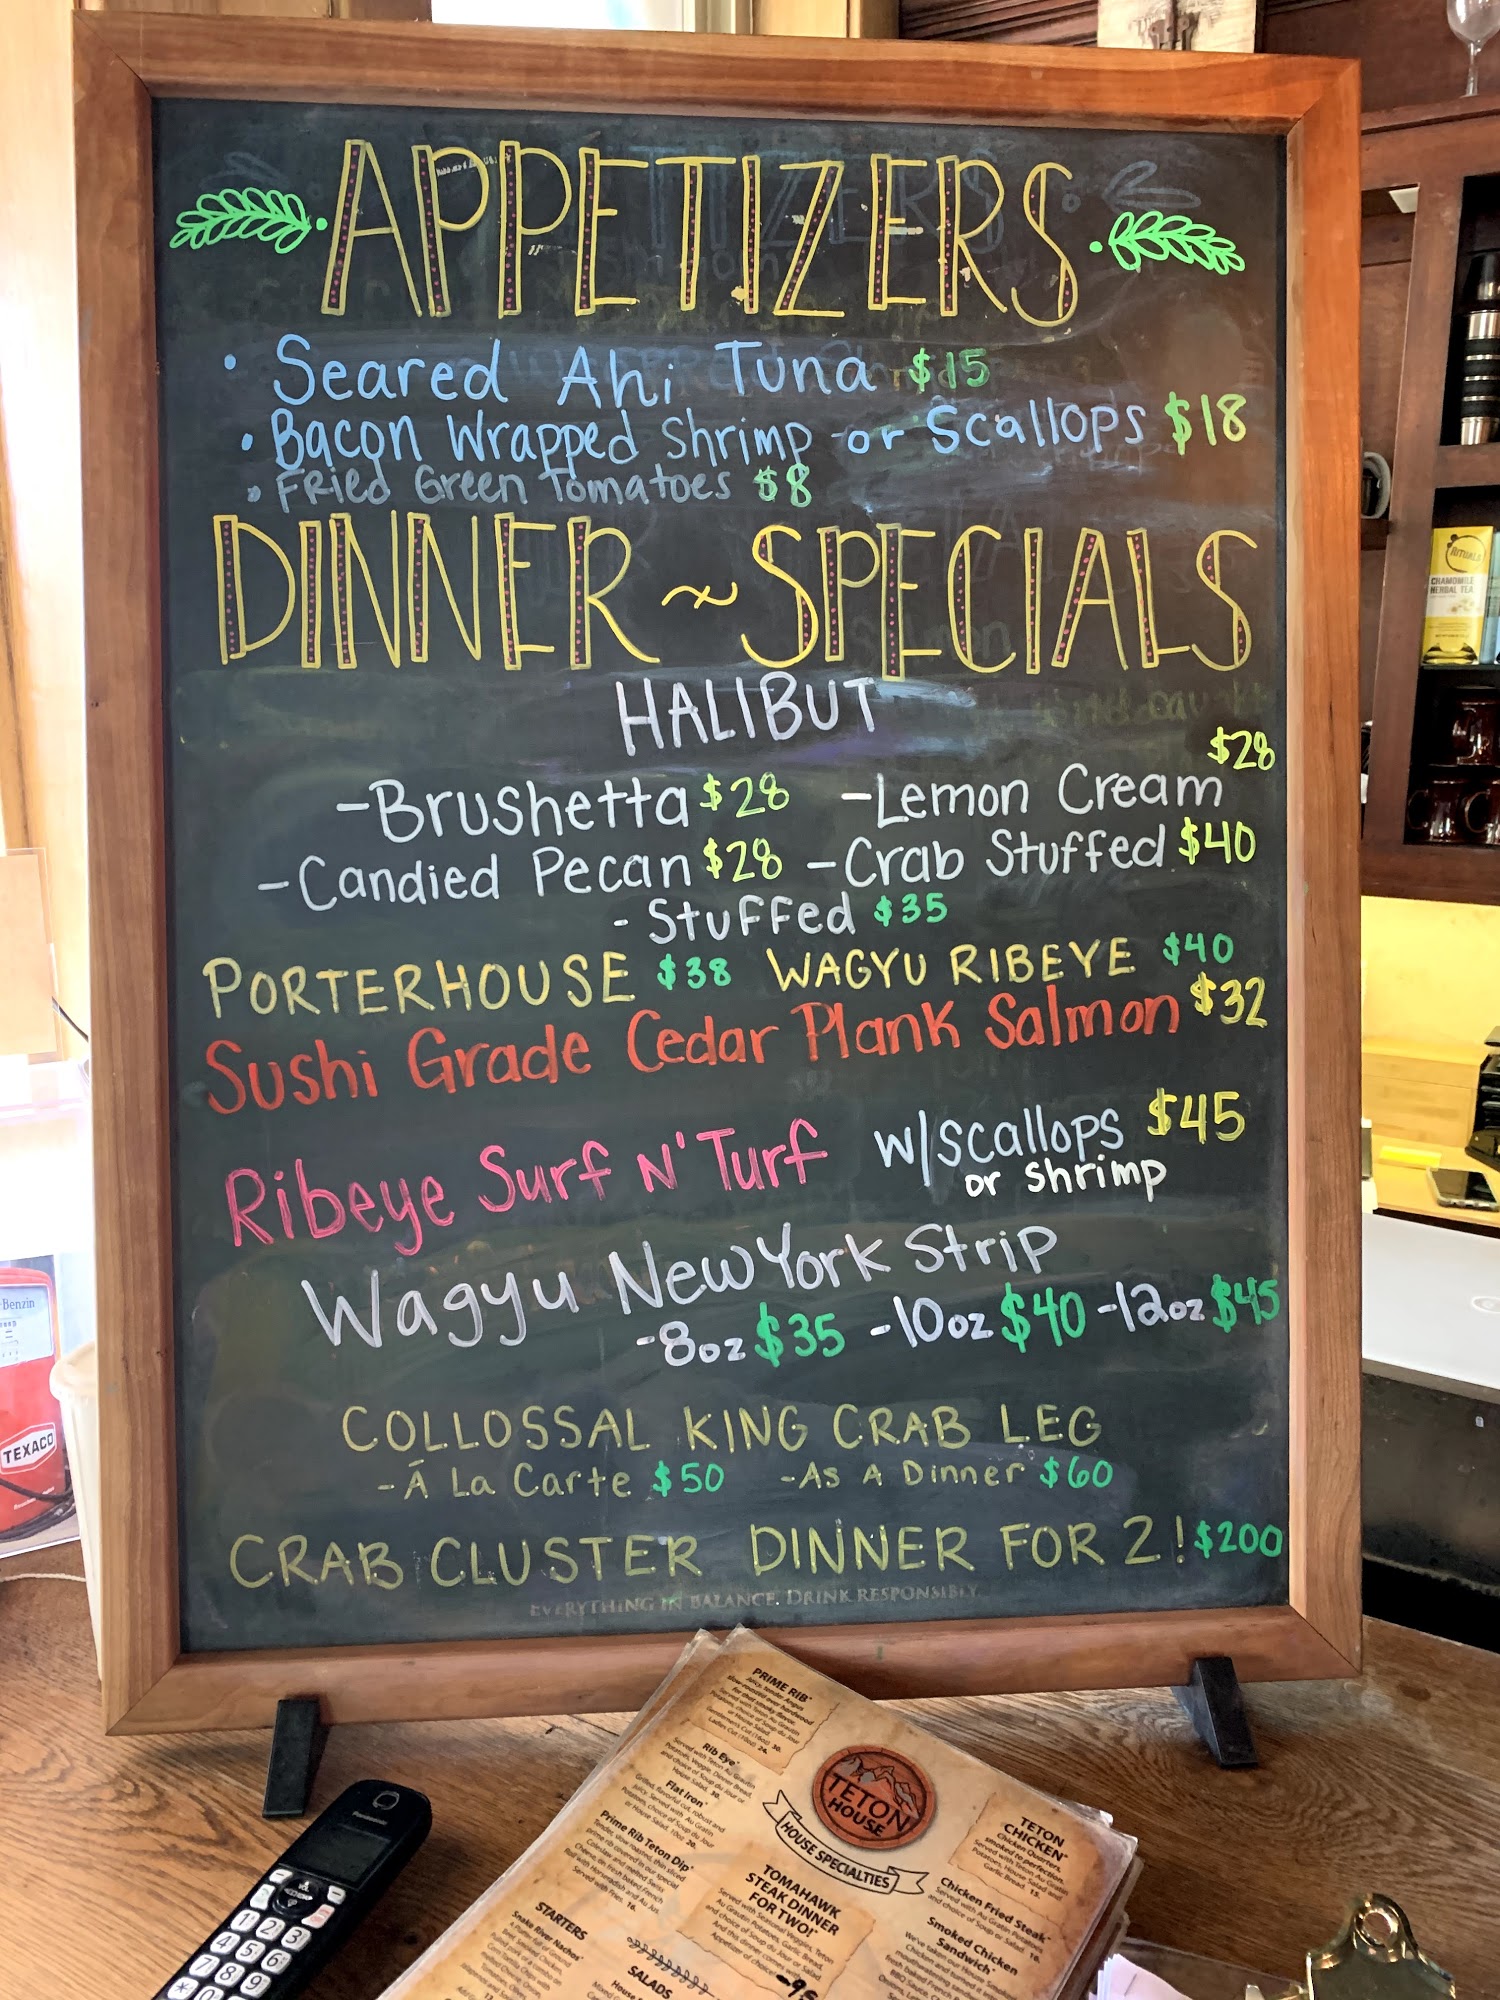 APPETIZERS
• Seared Ahi Tuna $15
• Bacon Wrapped Shrimp -or Scallops $18
• Fried Green Tomatoes $8
DINNER ~ SPECIALS
HALIBUT
-Brushetta $28 -Lemon Cream $28
-Candied Pecan $28 -Crab Stuffed $40
- Stuffed $35
PORTERHOUSE $38 WAGYU RIBEYE $40
Sushi Grade Cedar Plank Salmon $32
Ribeye Surf N' Turf w/scallops $45
or shrimp
Wagyu New York Strip
-8oz $35 -10oz $40 -12oz $45
COLLOSSAL KING CRAB LEG
-Á La Carte $50 -As A Dinner $60
CRAB CLUSTER DINNER FOR 2! $200
EVERYTHING IN BALANCE. DRINK RESPONSIBLY.
RITUALS
CHAMOMILE
HERBAL TEA
Benzin
TEXACO
PRIME RIB*
Rib Eye*
Flat Iron*
Prime Rib Teton Dip*
STARTERS
Snake River Nachos*
SALADS
TETON
HOUSE
HOUSE SPECIALTIES
TOMAHAWK
STEAK DINNER
FOR TWO!*
TETON
CHICKEN*
Chicken Fried Steak*
Smoked Chicken
Sandwich*
Panasonic
1 2 3
4 5 6
7 8 9
* 0